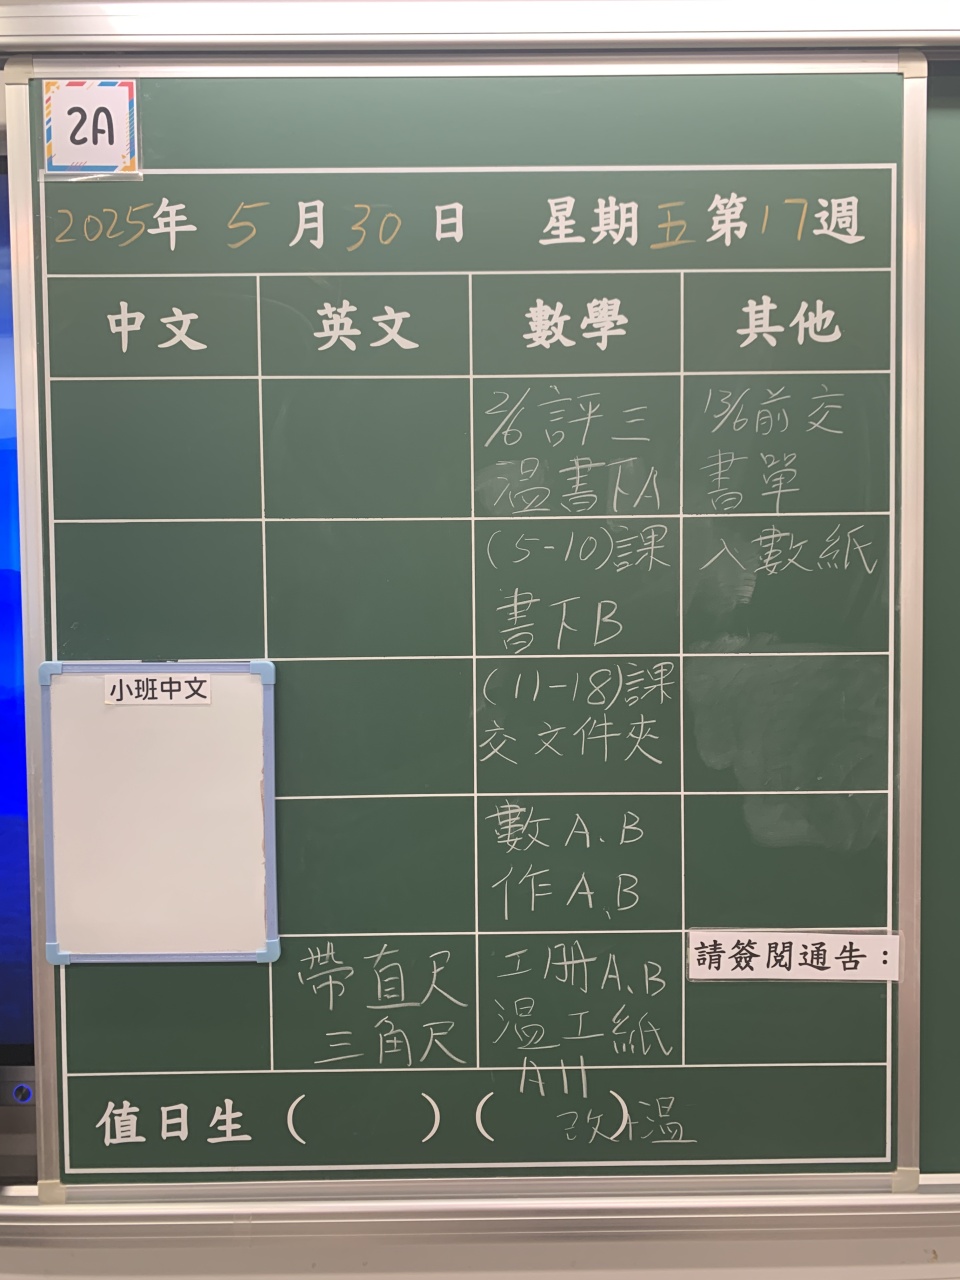 2A
2025年 5月30日 星期五第17週
中文 英文 數學 其他
2/6評三
温書下A
(5-10)課
書下B
(11-18)課
交文件夾
數A、B
作A、B
工册A、B
温工紙
A11
改+温
13/6前交
書單
入數紙
小班中文
帶直尺
三角尺
請簽閱通告：
值日生（ ）（ ）